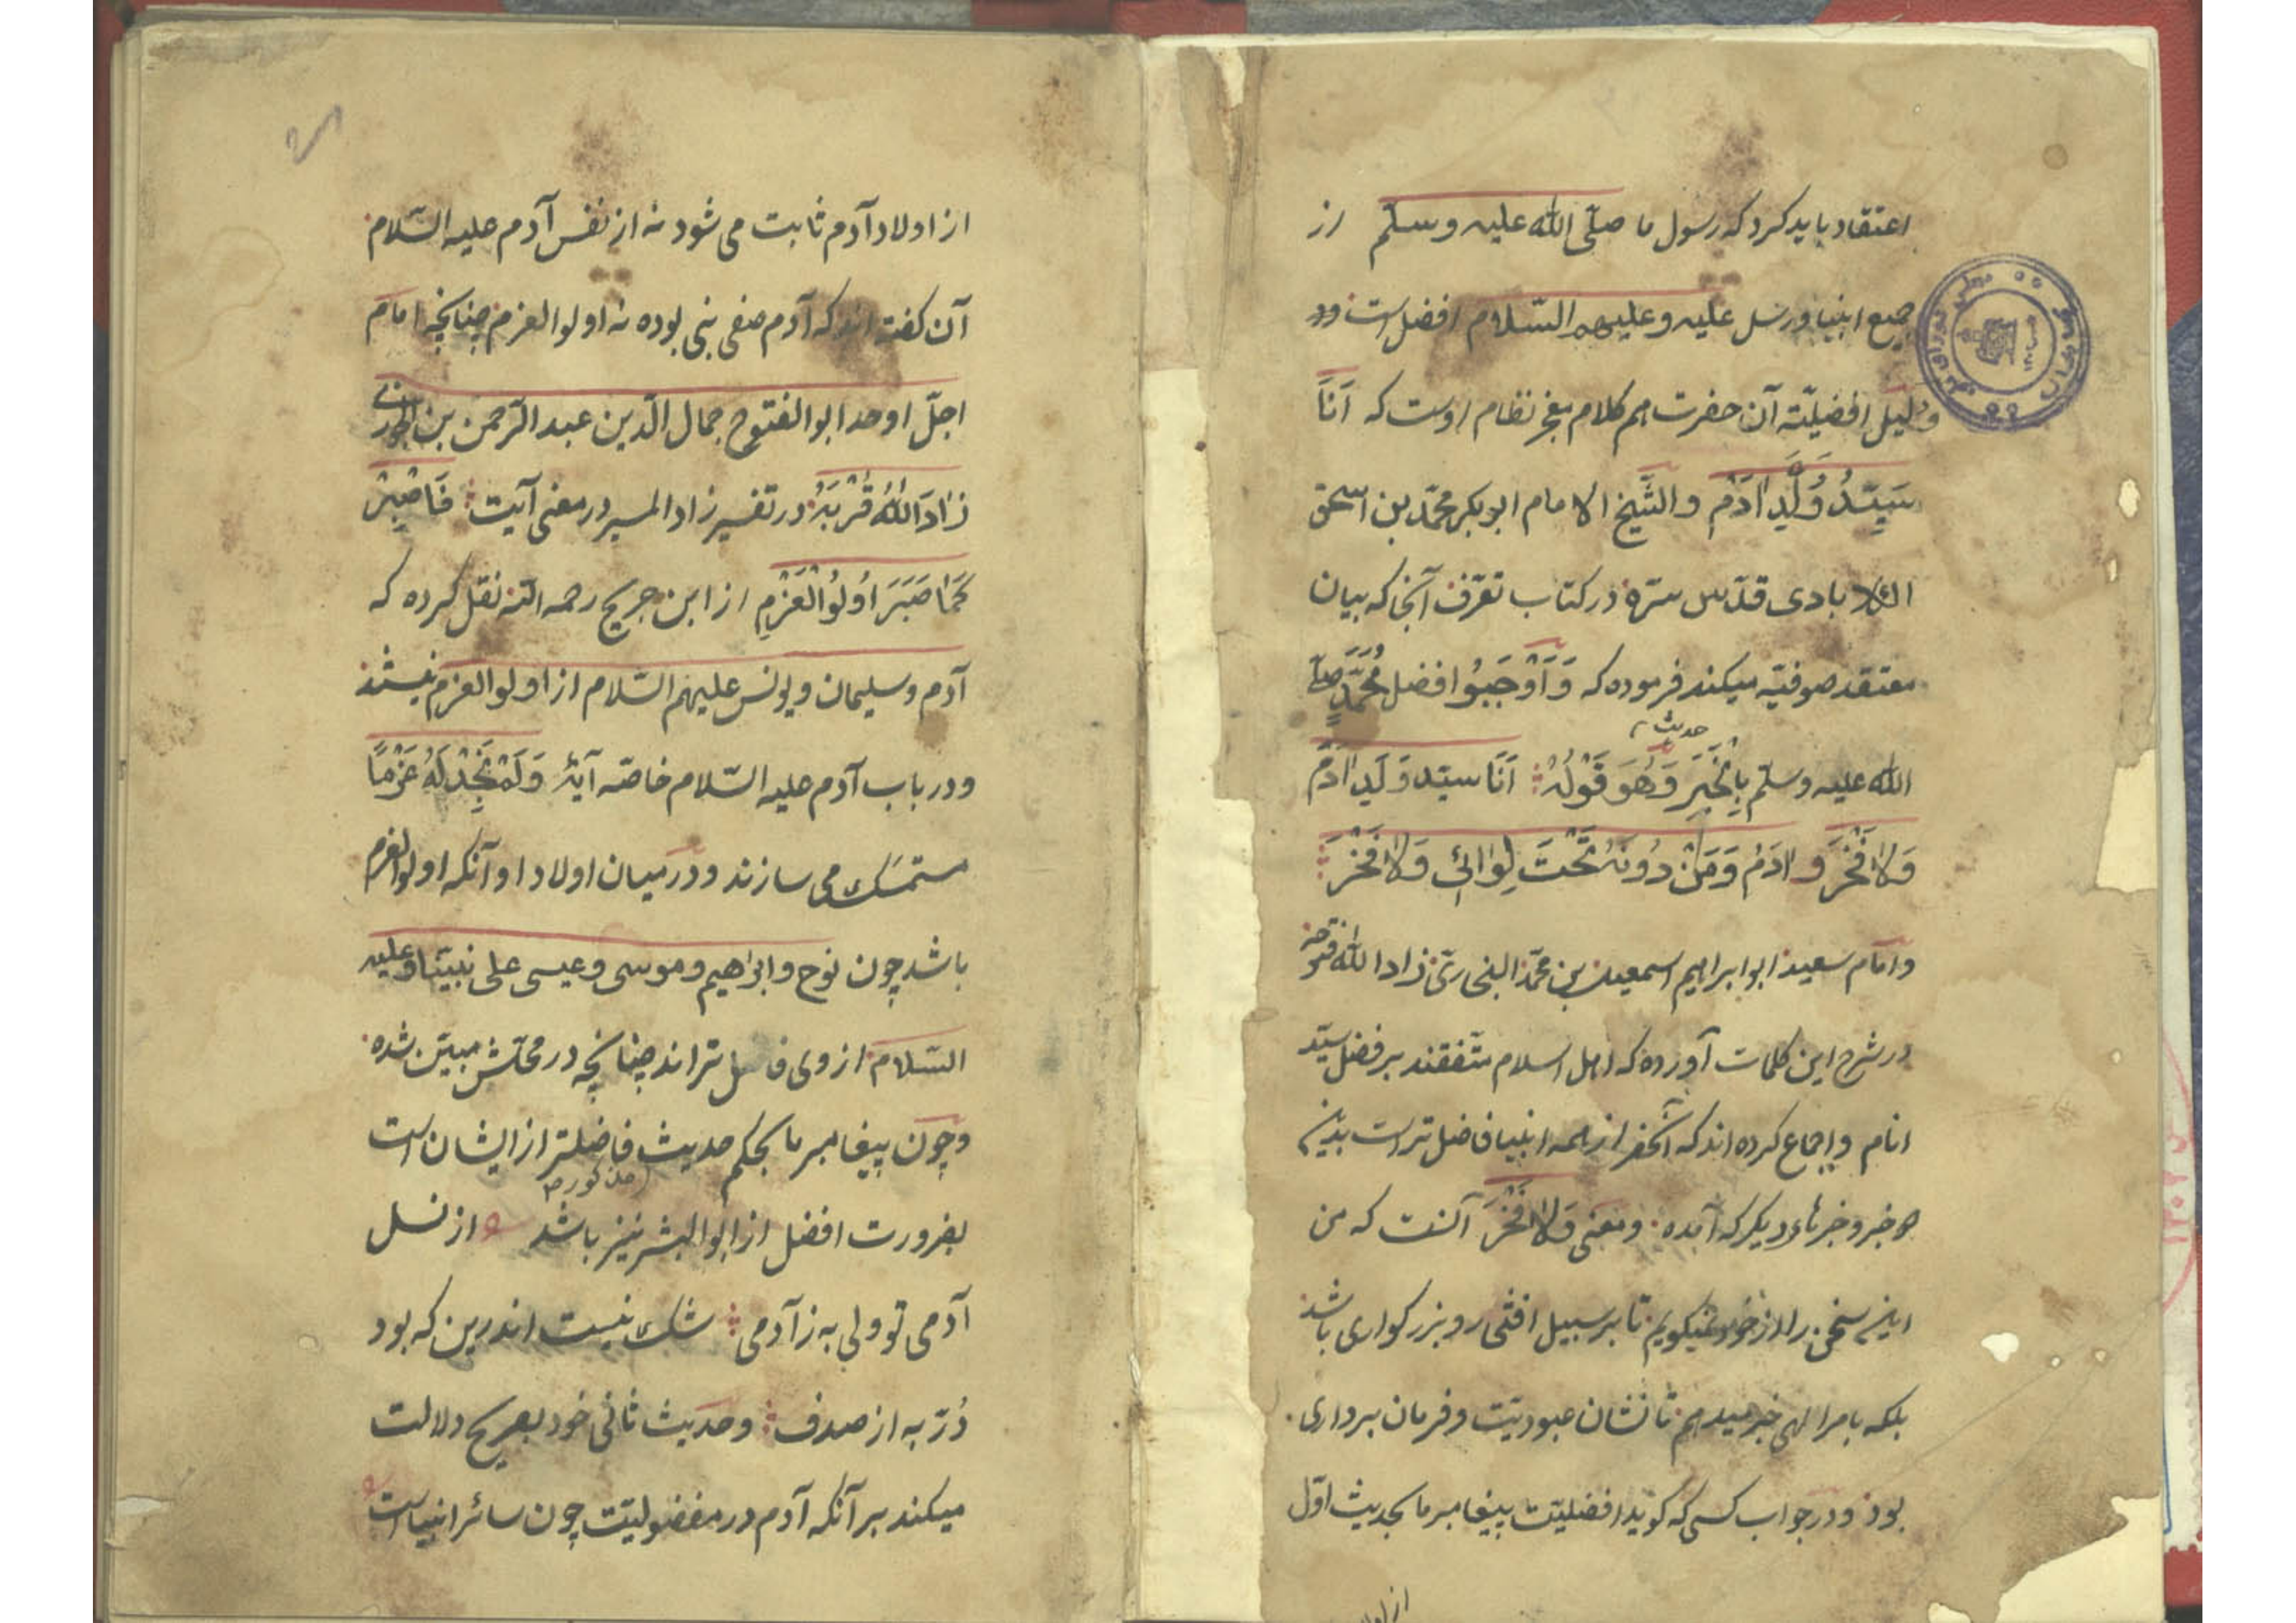 اعتقاد باید کرد که رسول ما صلّی الله علیه وسلّم از
جمیع انبیا ورسل علیه وعلیهم السّلام افضل است و
دلیل افضلیّة آن حضرت هم کلام معجز نظام اوست که اَنَا
سَیِّدُ وُلْدِ اٰدَمَ والشّیخ الامام ابوبکر محمّد بن اسحق
الکلابادی قدّس سرّه در کتاب تعرّف آنجا که بیان
معتقد صوفیّه میکند فرموده که وَاَوْجَبُوا افضل مُحَمَّدٍ صلّی
حدیث
الله علیه وسلّم بِالْخَبَرِ وَهُوَ قَوْلُهُ اَنَا سیّد وَلَدِ اٰدَمَ
وَلَا فَخْرَ وَ اٰدَمُ وَمَنْ دُونَهُ تَحْتَ لِوَائِی وَلَا فَخْرَ
وامام سعید ابو ابراهیم اسمعیل بن محمّد البخاری زاد الله فتوحه
در شرح این کلمات آورده که اهل اسلام متّفقند بر فضل سیّد
انام واجماع کرده اند که آنحضرت از همه انبیا فاضل تر است بدین
خبر وخبرهاء دیگر که آمده ومعنی وَلَا فَخْرَ آنست که من
این سخن را از خود نمیگویم تا بر سبیل افتخار وبزرکواری باشد
بلکه بامر الهی خبر میدهم تا نشان عبودیّت وفرمان برداری
بود ودر جواب کسی که کوید افضلیّت پیغامبر ما بحدیث اوّل
از اولاد
از اولاد آدم ثابت می شود نه از نفس آدم علیه السّلام
آن کفته اند که آدم صفی نبی بوده نه اولو العزم چنانچه امام
اجلّ اوحد ابو الفتوح جمال الدّین عبد الرّحمن بن الجوزی
زَادَ اللهُ قُرْبَهُ در تفسیر زاد المسیر در معنی آیت فَاصْبِرْ
کَمَا صَبَرَ اُولُوا الْعَزْمِ از ابن جریج رحمه الله نقل کرده که
آدم وسلیمان ویونس علیهم السّلام از اولو العزم نیستند
ودر باب آدم علیه السّلام خاصّه آیۀ وَلَمْ نَجِدْ لَهُ عَزْمًا
متمسّک می سازند ودر میان اولاد او آنکه اولو العزم
باشد چون نوح وابراهیم وموسی وعیسی علی نبیّنا وعلیهم
السّلام از وی فاضل تر اند چنانچه در محلّش مبیّن شده
وچون پیغامبر ما بحکم حدیث فاضلتر از ایشان است
مذکور
بضرورت افضل از ابو البشر نیز باشد از نسل
آدمی تو ولی به ز آدمی شک نیست اندرین که بود
دُرّ به از صدف وحدیث ثانی خود بصریح دلالت
میکند بر آنکه آدم در مفضولیّت چون سائر انبیا است